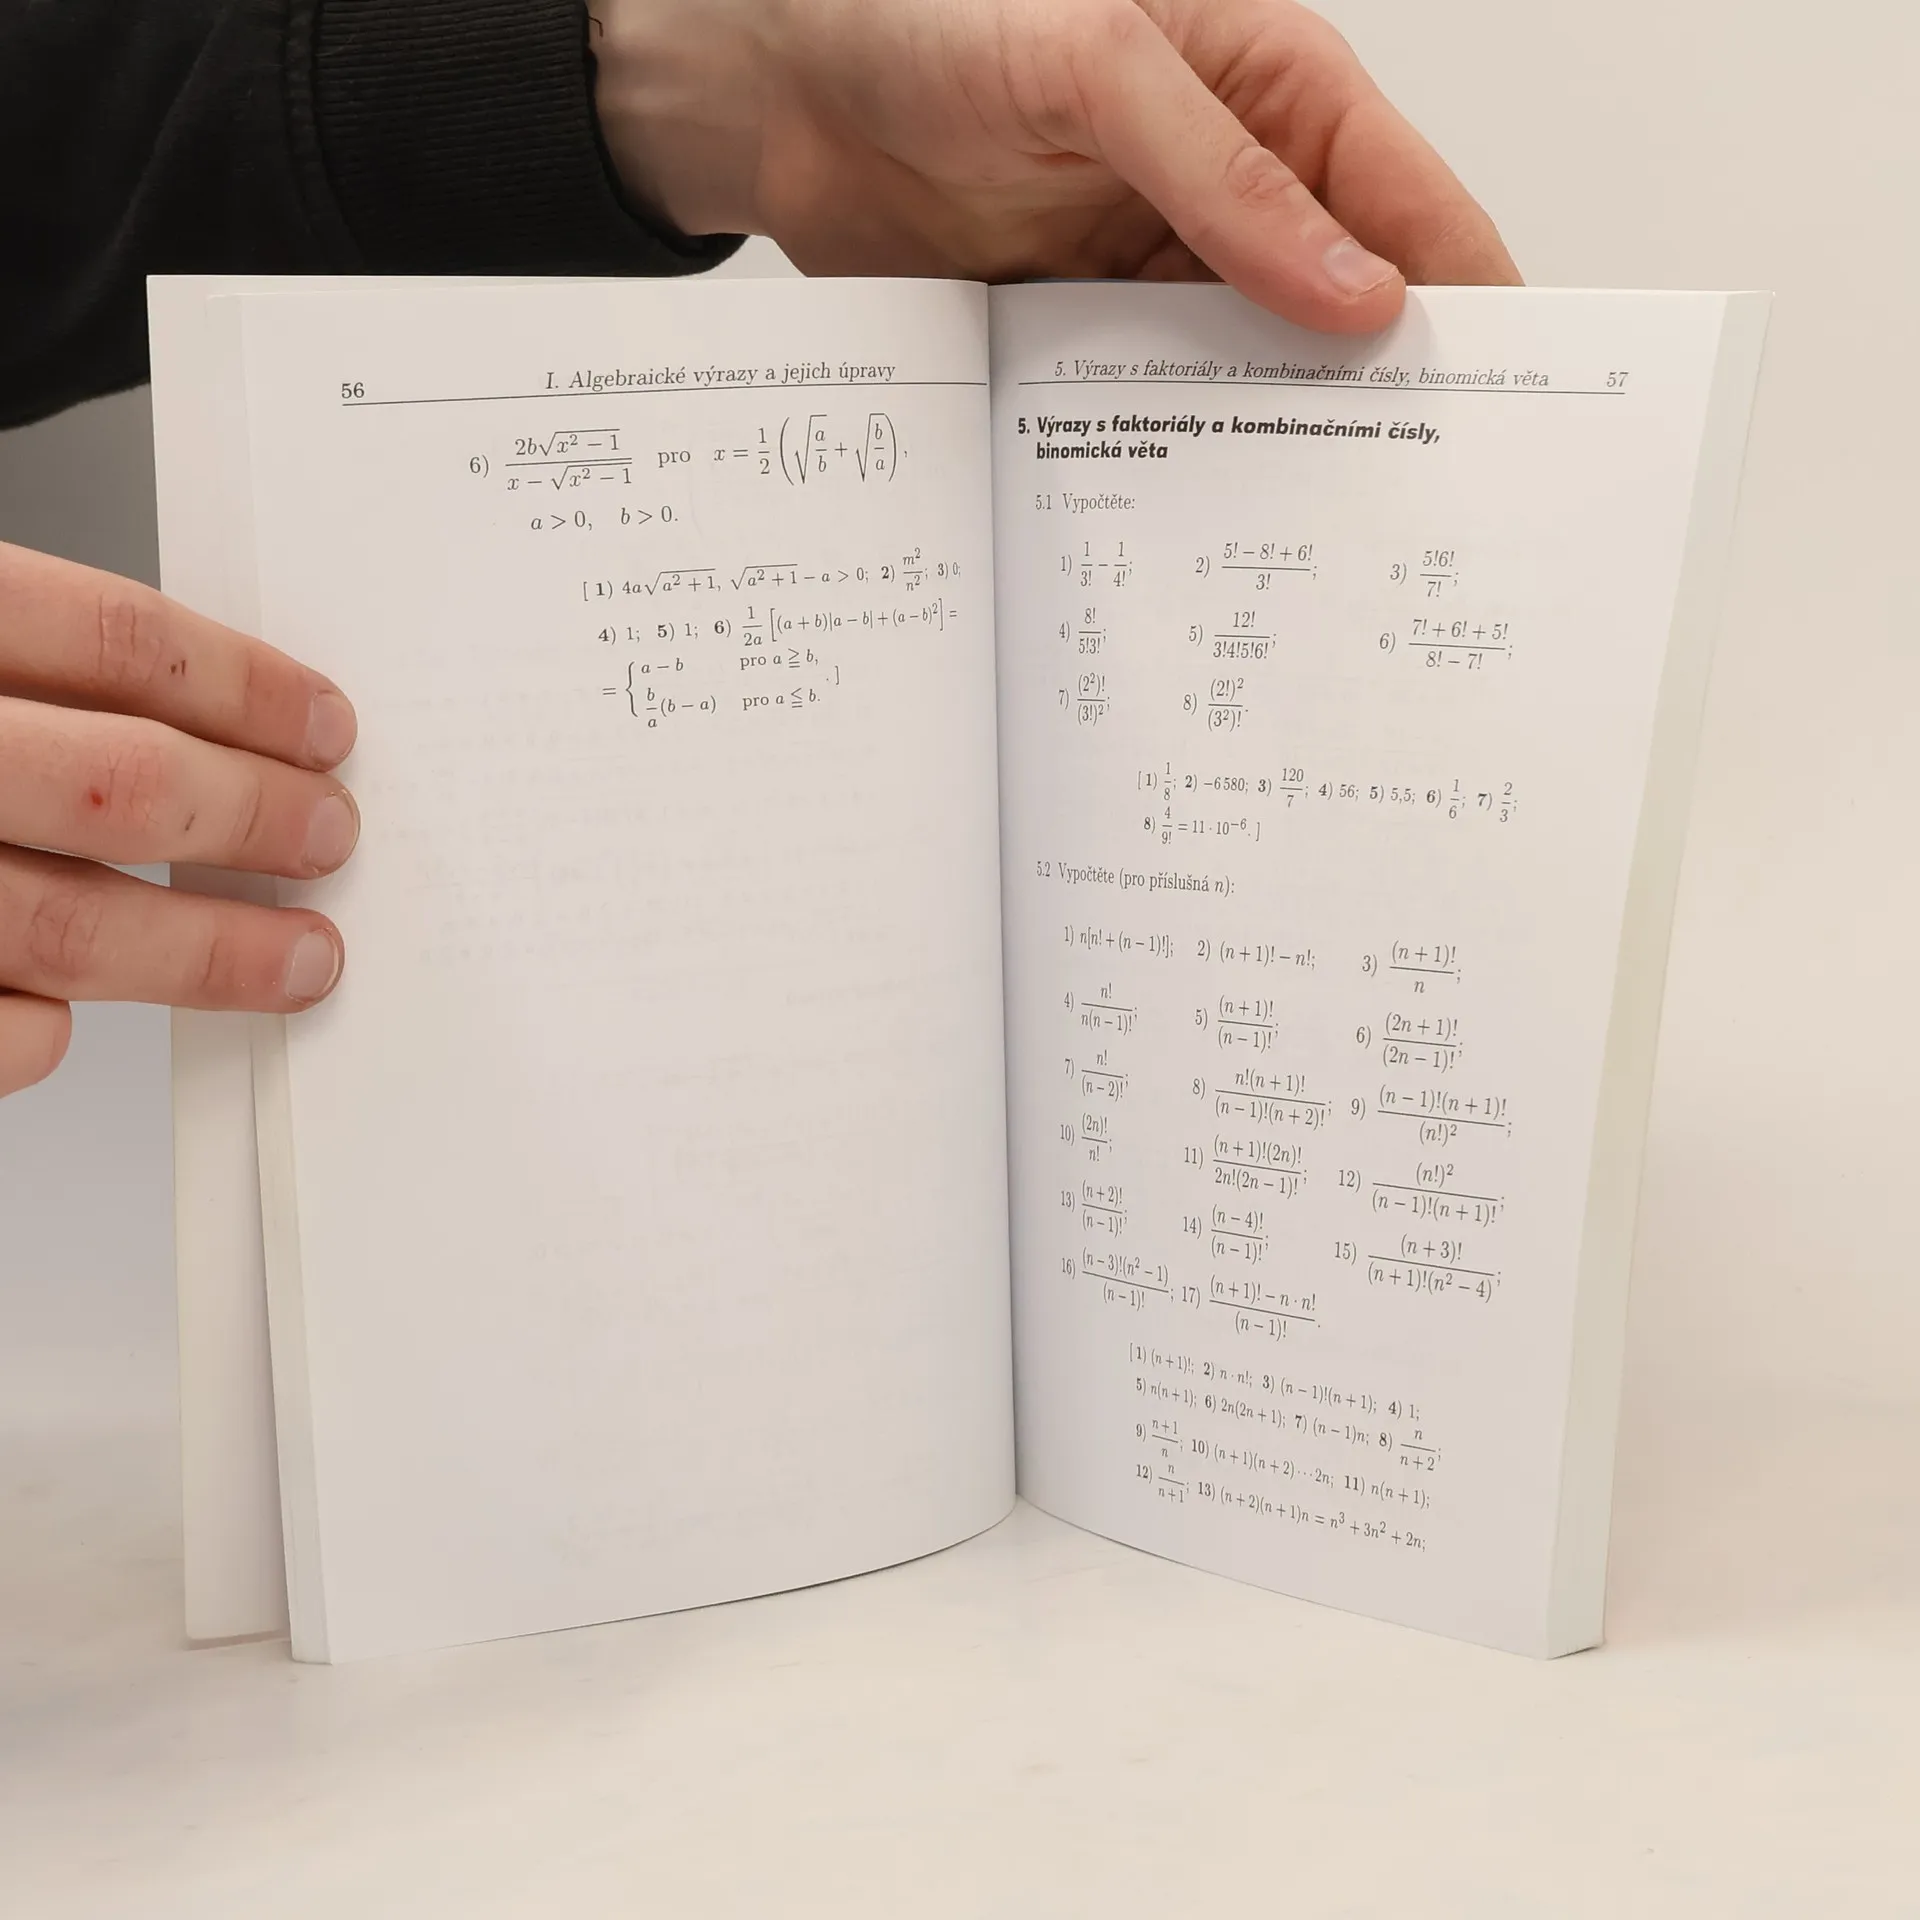 56 I. Algebraické výrazy a jejich úpravy
6) \frac{2b\sqrt{x^2 - 1}}{x - \sqrt{x^2 - 1}} pro x = \frac{1}{2}\left(\sqrt{\frac{a}{b}} + \sqrt{\frac{b}{a}}\right),
a > 0, b > 0.
[ 1) 4a\sqrt{a^2 + 1}, \sqrt{a^2 + 1} - a > 0; 2) \frac{m^2}{n^2}; 3) 0;
4) 1; 5) 1; 6) \frac{1}{2a}[(a + b)|a - b| + (a - b)^2] =
= { a - b pro a ≧ b,
\frac{b}{a}(b - a) pro a ≦ b. . ]
5. Výrazy s faktoriály a kombinačními čísly, binomická věta 57
5. Výrazy s faktoriály a kombinačními čísly,
binomická věta
5.1 Vypočtěte:
1) \frac{1}{3!} - \frac{1}{4!}; 2) \frac{5! - 8! + 6!}{3!}; 3) \frac{5!6!}{7!};
4) \frac{8!}{5!3!}; 5) \frac{12!}{3!4!5!6!}; 6) \frac{7! + 6! + 5!}{8! - 7!};
7) \frac{(2^2)!}{(3!)^2}; 8) \frac{(2!)^2}{(3^2)!}.
[ 1) \frac{1}{8}; 2) -6580; 3) \frac{120}{7}; 4) 56; 5) 5,5; 6) \frac{1}{6}; 7) \frac{2}{3};
8) \frac{4}{9!} = 11 · 10^{-6}. ]
5.2 Vypočtěte (pro příslušná n):
1) n[n! + (n - 1)!]; 2) (n + 1)! - n!; 3) \frac{(n + 1)!}{n};
4) \frac{n!}{n(n - 1)!}; 5) \frac{(n + 1)!}{(n - 1)!}; 6) \frac{(2n + 1)!}{(2n - 1)!};
7) \frac{n!}{(n - 2)!}; 8) \frac{n!(n + 1)!}{(n - 1)!(n + 2)!}; 9) \frac{(n - 1)!(n + 1)!}{(n!)^2};
10) \frac{(2n)!}{n!}; 11) \frac{(n + 1)!(2n)!}{2n!(2n - 1)!}; 12) \frac{(n!)^2}{(n - 1)!(n + 1)!};
13) \frac{(n + 2)!}{(n - 1)!}; 14) \frac{(n - 4)!}{(n - 1)!}; 15) \frac{(n + 3)!}{(n + 1)!(n^2 - 4)};
16) \frac{(n - 3)!(n^2 - 1)}{(n - 1)!}; 17) \frac{(n + 1)! - n · n!}{(n - 1)!}.
[ 1) (n + 1)!; 2) n · n!; 3) (n - 1)!(n + 1); 4) 1;
5) n(n + 1); 6) 2n(2n + 1); 7) (n - 1)n; 8) \frac{n}{n + 2};
9) \frac{n + 1}{n}; 10) (n + 1)(n + 2) ··· 2n; 11) n(n + 1);
12) \frac{n}{n + 1}; 13) (n + 2)(n + 1)n = n^3 + 3n^2 + 2n;